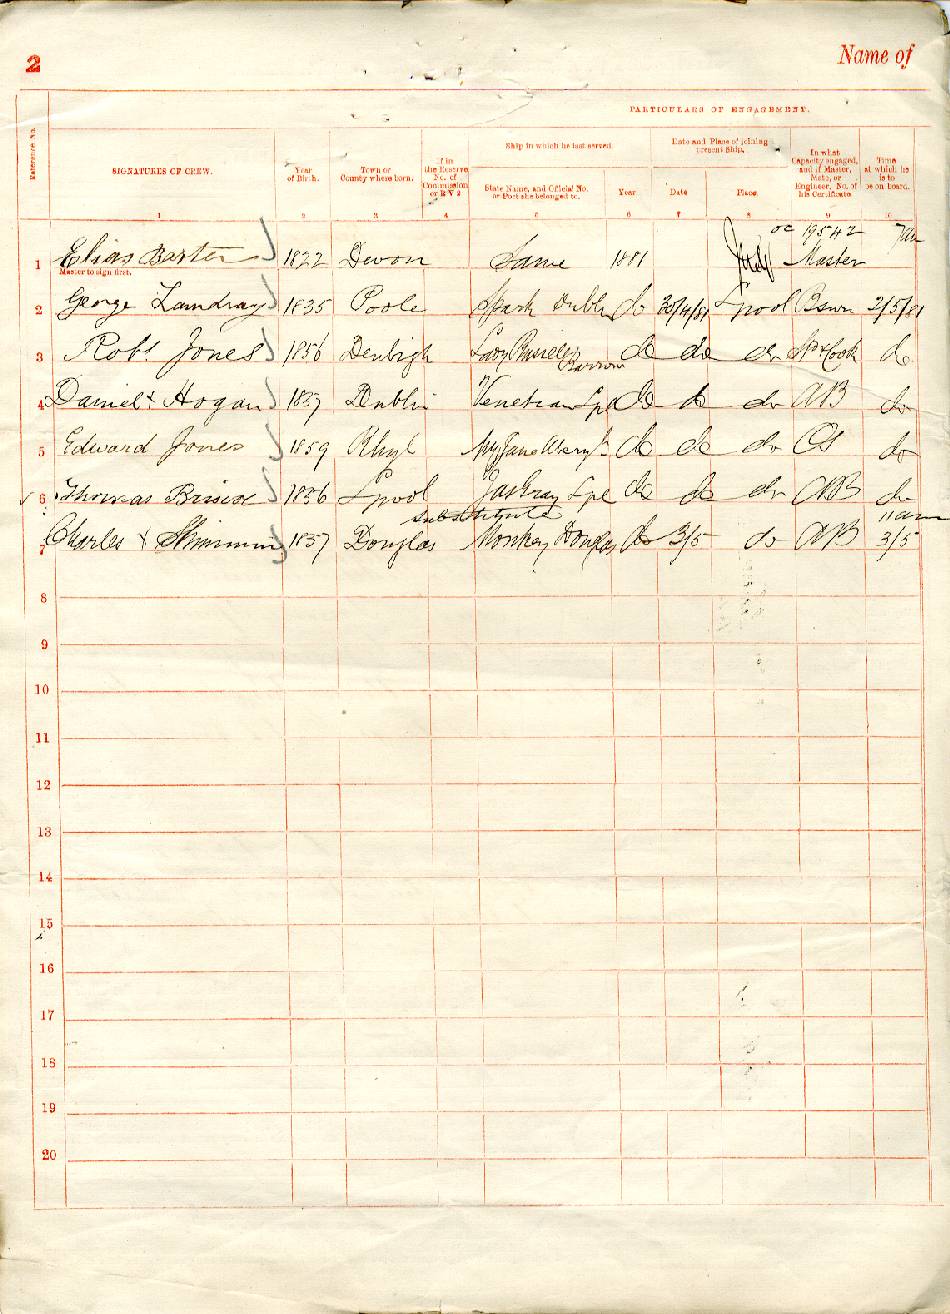 2 Name of
PARTICULARS OF ENGAGEMENT.
Reference No.
SIGNATURES OF CREW.
Year of Birth.
Town or County where born.
If in the Reserve No. of Commission or R V 2
Ship in which he last served.
State Name, and Official No. or Port she belonged to.
Year
Date and Place of joining present Ship.
Date
Place.
In what Capacity engaged, and if Master, Mate, or Engineer, No. of his Certificate
Time at which he is to be on board.
1 2 3 4 5 6 7 8 9 10
oc 19542
1 Elias Baxter 1822 Devon Same 1881 Master
Master to sign first.
2 George Landray 1835 Poole Spark Dublin do 30/4/81 Lpool Bswn 2/5/81
3 Robt Jones 1856 Denbigh Lady do do do Cook do
Barrow
4 Daniel x Hogan 1837 Dublin Venetian Lpl do do do AB do
5 Edward Jones 1859 Rhyl do do do OS do
6 Thomas 1836 Lpool Lpl do do do AB do
substitute 11 am
7 Charles x Skimmin 1837 Douglas Monkey Douglas do 3/5 do AB 3/5
8
9
10
11
12
13
14
15
16
17
18
19
20